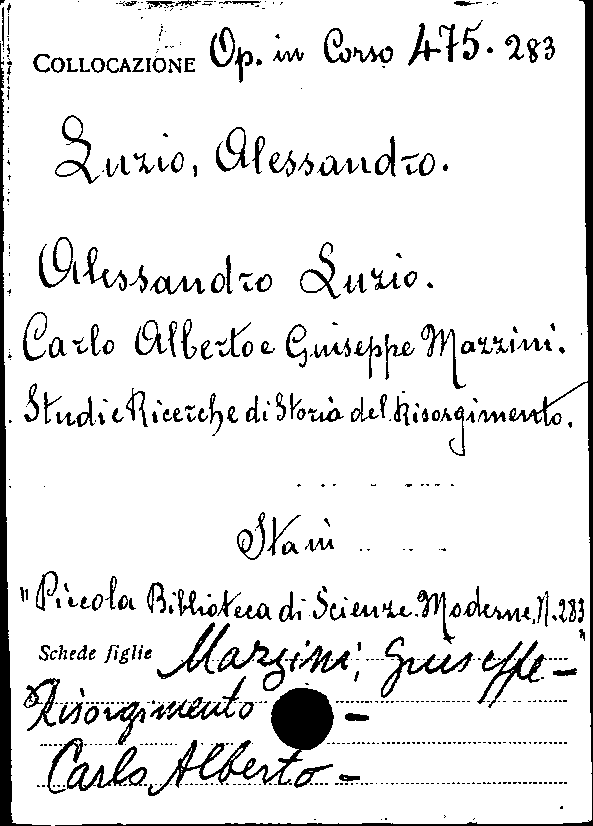 COLLOCAZIONE Op. in Corso 475. 283
Luzio, Alessandro.
Alessandro Luzio.
Carlo Alberto e Giuseppe Mazzini.
Studi e Ricerche di Storia del Risorgimento.
"Piccola Biblioteca di Scienze Moderne, N. 283"
Schede figlie Mazzini, Giuseppe –
Risorgimento –
Carlo Alberto –